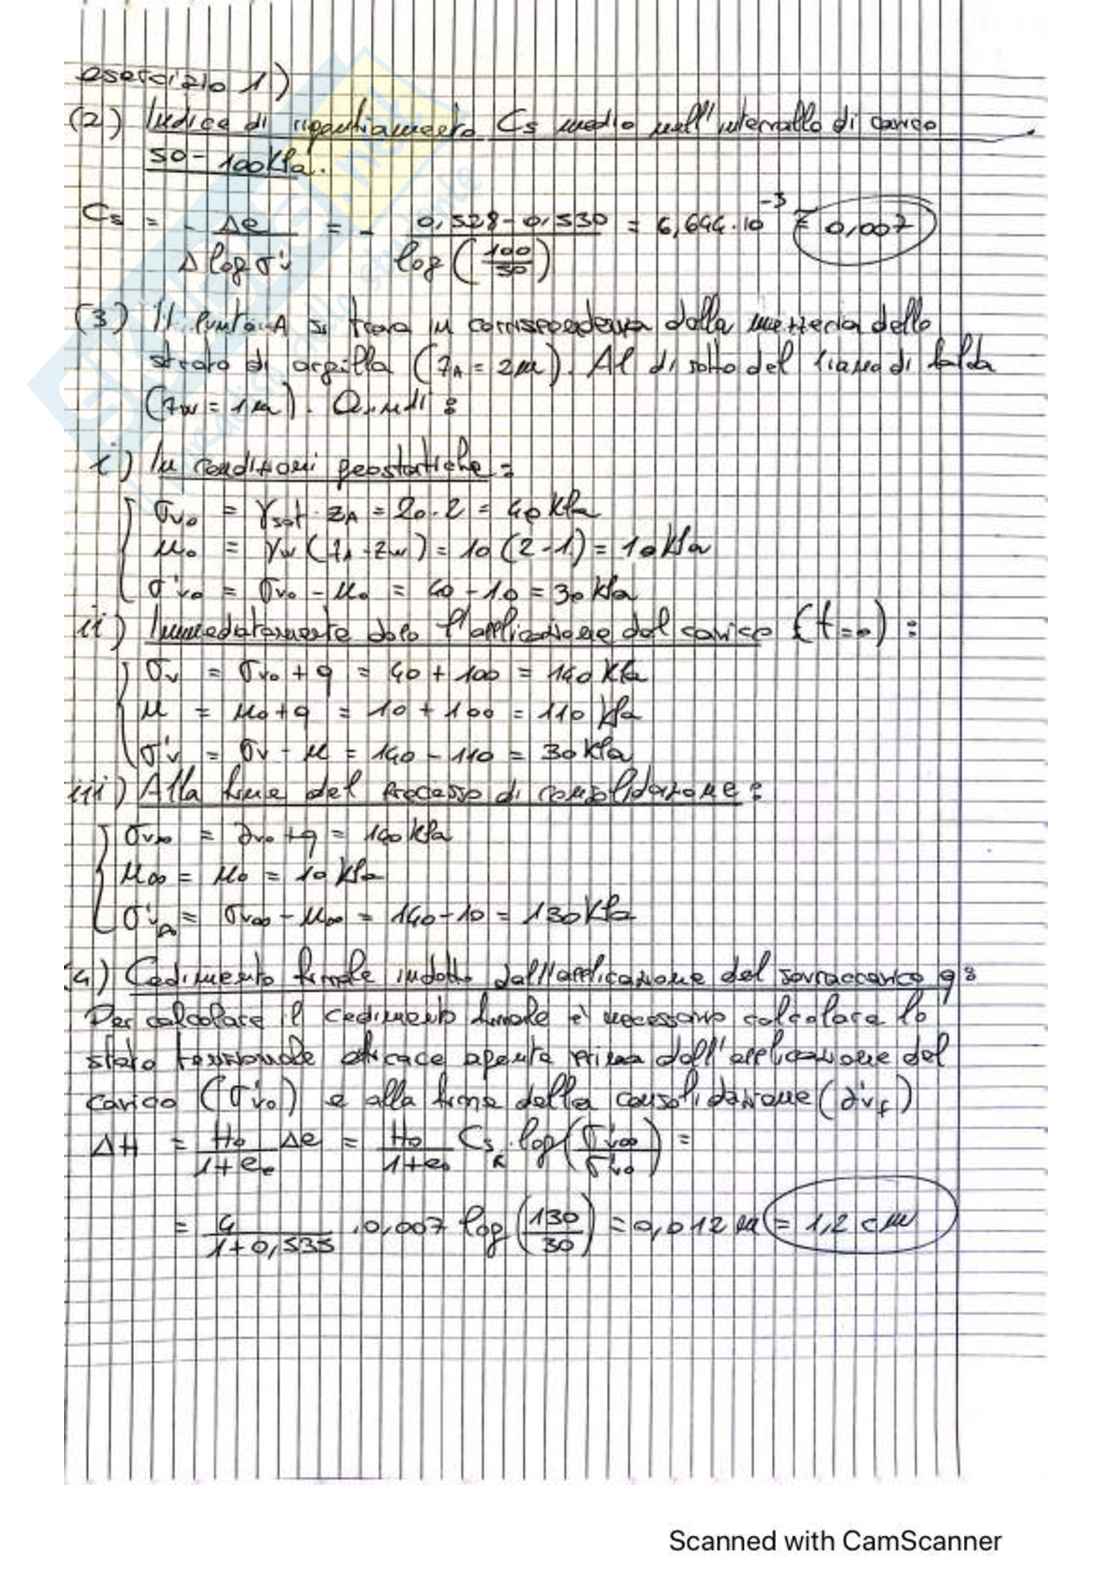 esercizio 1)
(2) Indice di rigonfiamento Cs medio nell'intervallo di carico
50 - 100 kPa.
Cs = - Δe / Δ log σ'v = - 0,528 - 0,530 / log (100/50) = 6,644 · 10^-3 ≅ 0,007
(3) Il punto A si trova in corrispondenza della mezzeria dello
strato di argilla (zA = 2m). Al di sotto del piano di falda
(zw = 1m). Quindi:
i) In condizioni geostatiche:
σvo = γsat · zA = 20 · 2 = 40 kPa
uo = γw (zA - zw) = 10 (2 - 1) = 10 kPa
σ'vo = σvo - uo = 40 - 10 = 30 kPa
ii) Immediatamente dopo l'applicazione del carico (t=0):
σv = σvo + q = 40 + 100 = 140 kPa
u = uo + q = 10 + 100 = 110 kPa
σ'v = σv - u = 140 - 110 = 30 kPa
iii) Alla fine del processo di consolidazione:
σv∞ = σvo + q = 140 kPa
u∞ = uo = 10 kPa
σ'v∞ = σv∞ - u∞ = 140 - 10 = 130 kPa
(4) Cedimento finale indotto dall'applicazione del sovraccarico q:
Per calcolare il cedimento finale è necessario calcolare lo
stato tensionale efficace agente prima dell'applicazione del
carico (σ'vo) e alla fine della consolidazione (σ'vf)
ΔH = Ho / 1+eo Δe = Ho / 1+eo Cs · log (σ'v∞ / σ'vo) =
= 4 / 1+0,535 · 0,007 log (130/30) = 0,012 m = 1,2 cm
Scanned with CamScanner